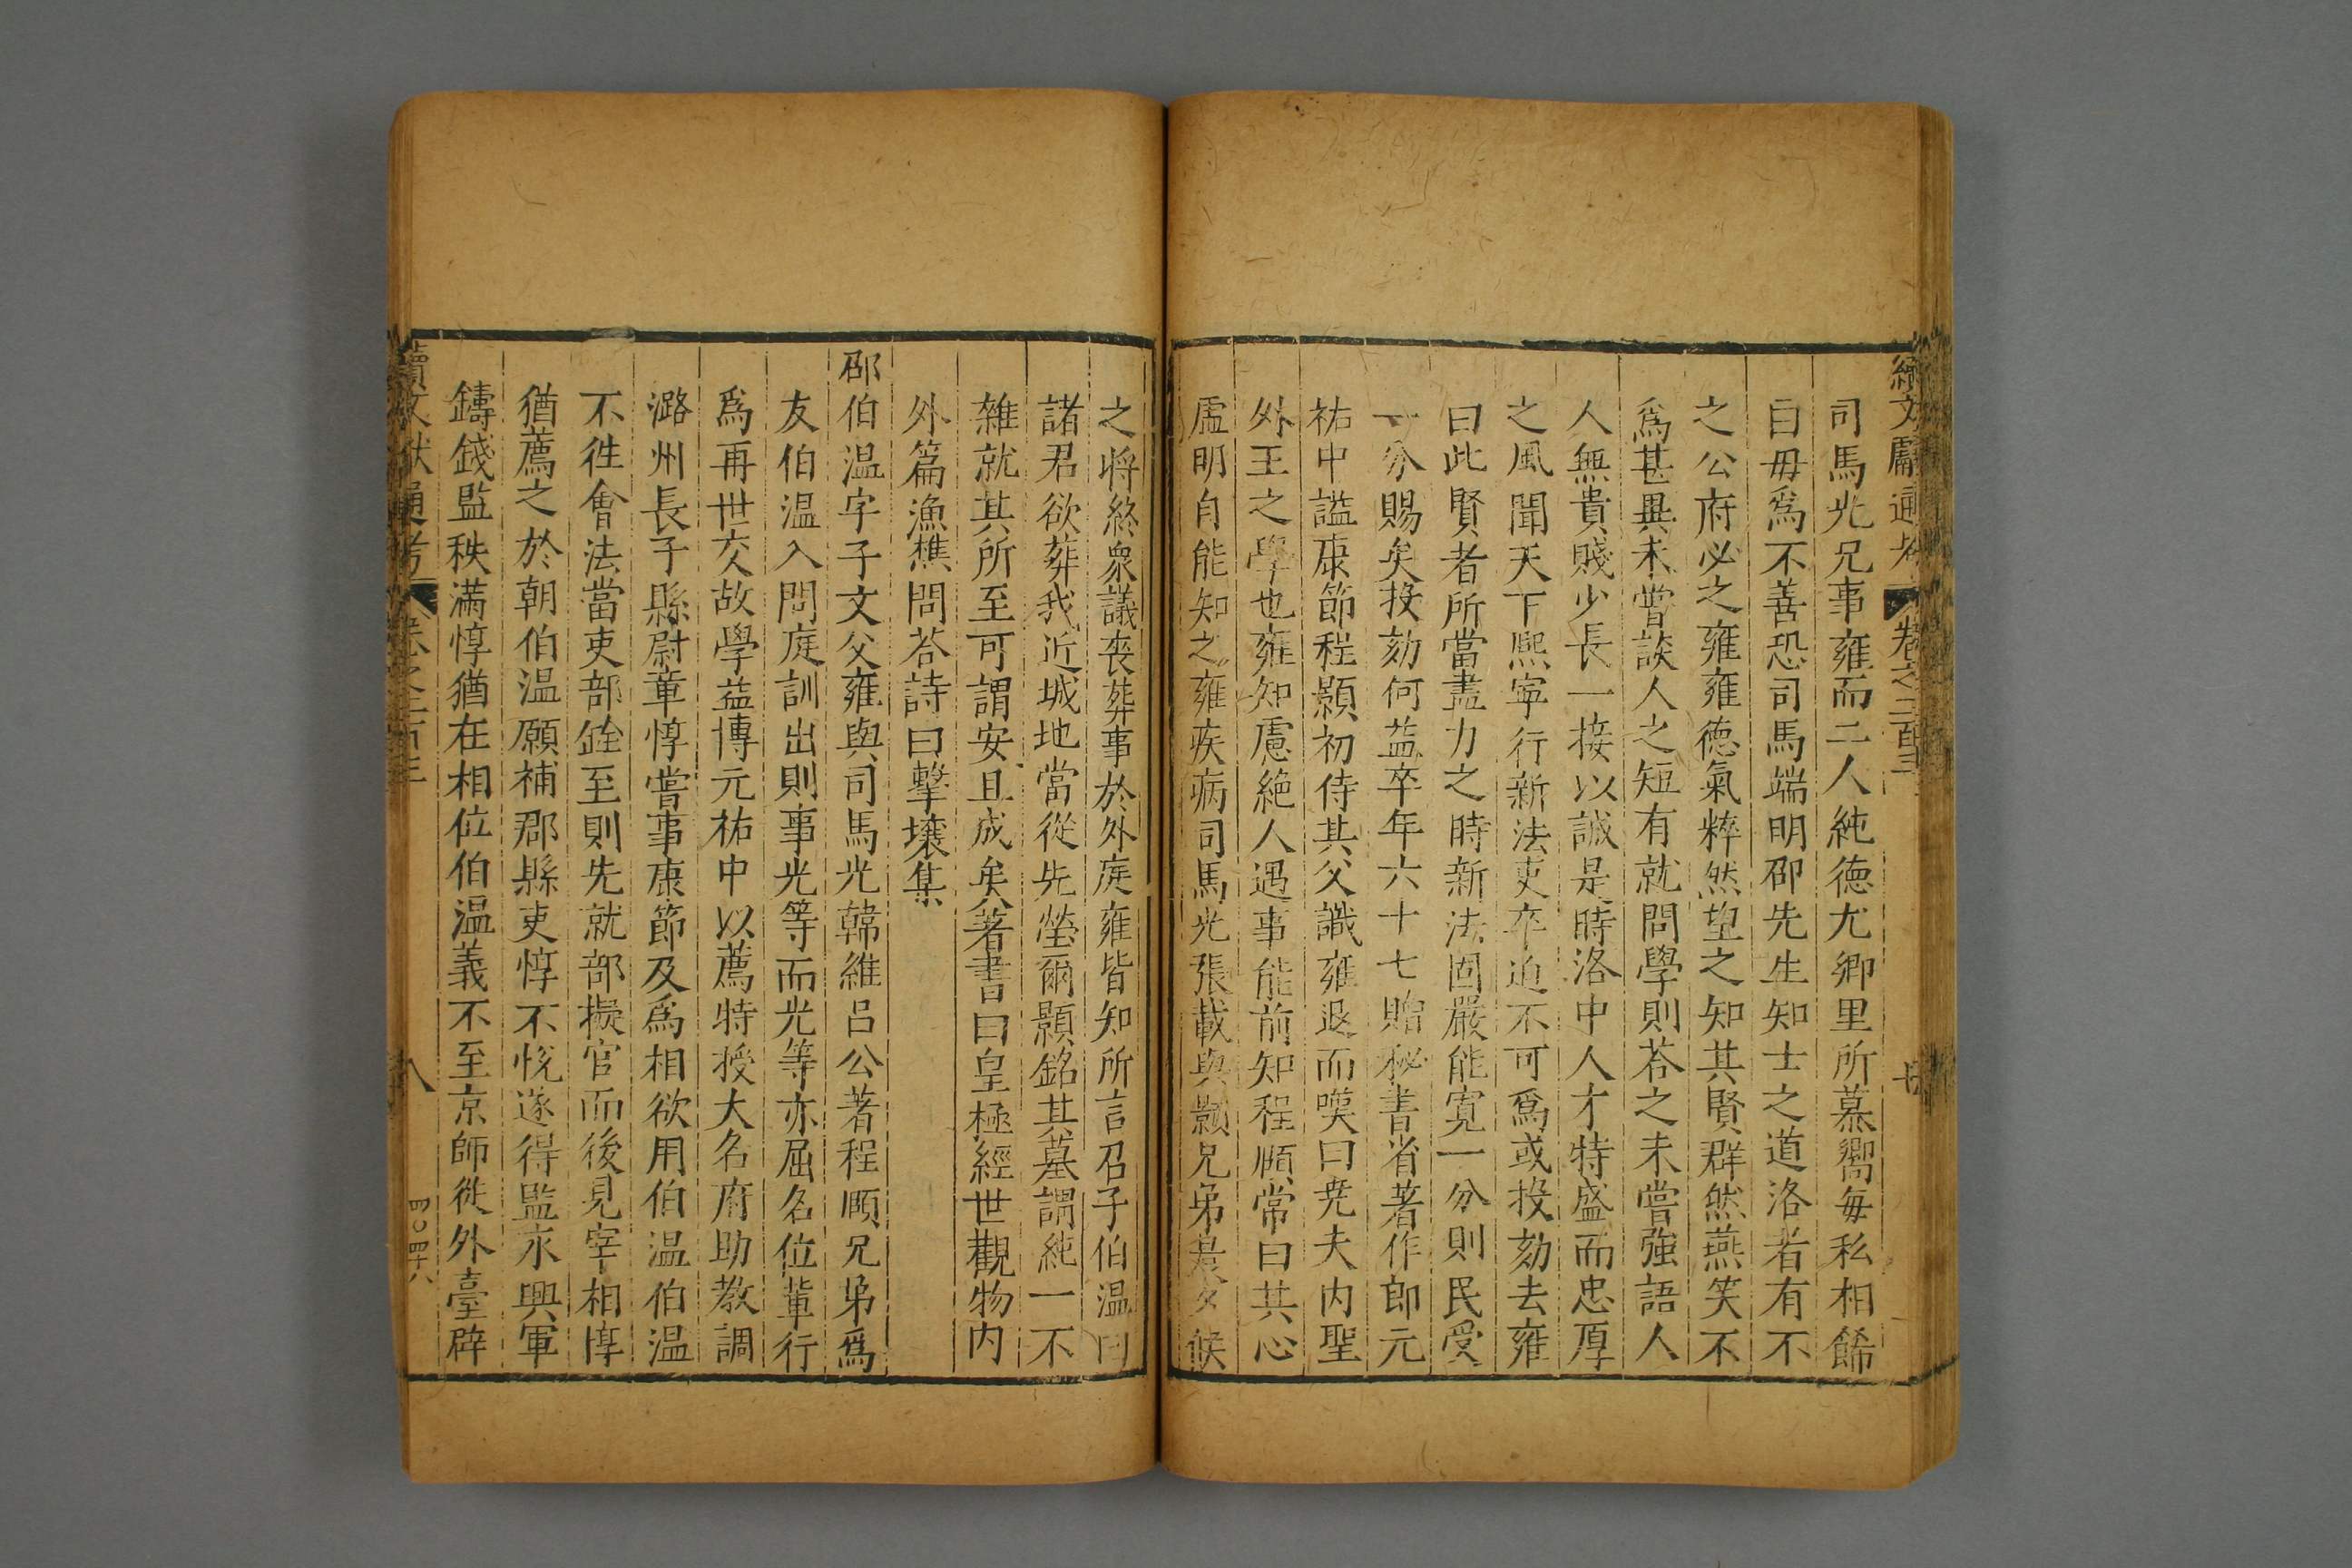 續文獻通考 卷之二百三 七
司馬光兄事雍而二人純德尤鄉里所慕嚮每私相飭
曰毋爲不善恐司馬端明邵先生知士之道洛者有不
之公府必之雍雍德氣粹然望之知其賢群然燕笑不
爲甚異未嘗談人之短有就問學則荅之未嘗強語人
人無貴賤少長一接以誠是時洛中人才特盛而忠厚
之風聞天下熙寧行新法吏卒迫不可爲或投劾去雍
曰此賢者所當盡力之時新法固嚴能寛一分則民受
一分賜矣投劾何益卒年六十七贈秘書省著作郎元
祐中謚康節程顥初侍其父識雍退而嘆曰尭夫內聖
外王之學也雍知慮絶人遇事能前知程頤常曰其心
虛明自能知之雍疾病司馬光張載與顥兄弟晨夕候
之將終衆議喪葬事於外庭雍皆知所言召子伯温曰
諸君欲葬我近城地當從先塋爾顥銘其墓謂純一不
雜就其所至可謂安且成矣著書曰皇極經世觀物内
外篇漁樵問荅詩曰擊壤集
邵伯温字子文父雍與司馬光韓維呂公著程頤兄弟爲
友伯温入問庭訓出則事光等而光等亦屈名位輩行
爲再世交故學益博元祐中以薦特授大名府助教調
潞州長子縣尉章惇嘗事康節及爲相欲用伯温伯温
不徃會法當吏部銓至則先就部擬官而後見宰相惇
猶薦之於朝伯温願補郡縣吏惇不悅遂得監永興軍
鑄錢監秩滿惇猶在相位伯温義不至京師從外臺辟
續文獻通考 卷之二百三 八 四〇四十八